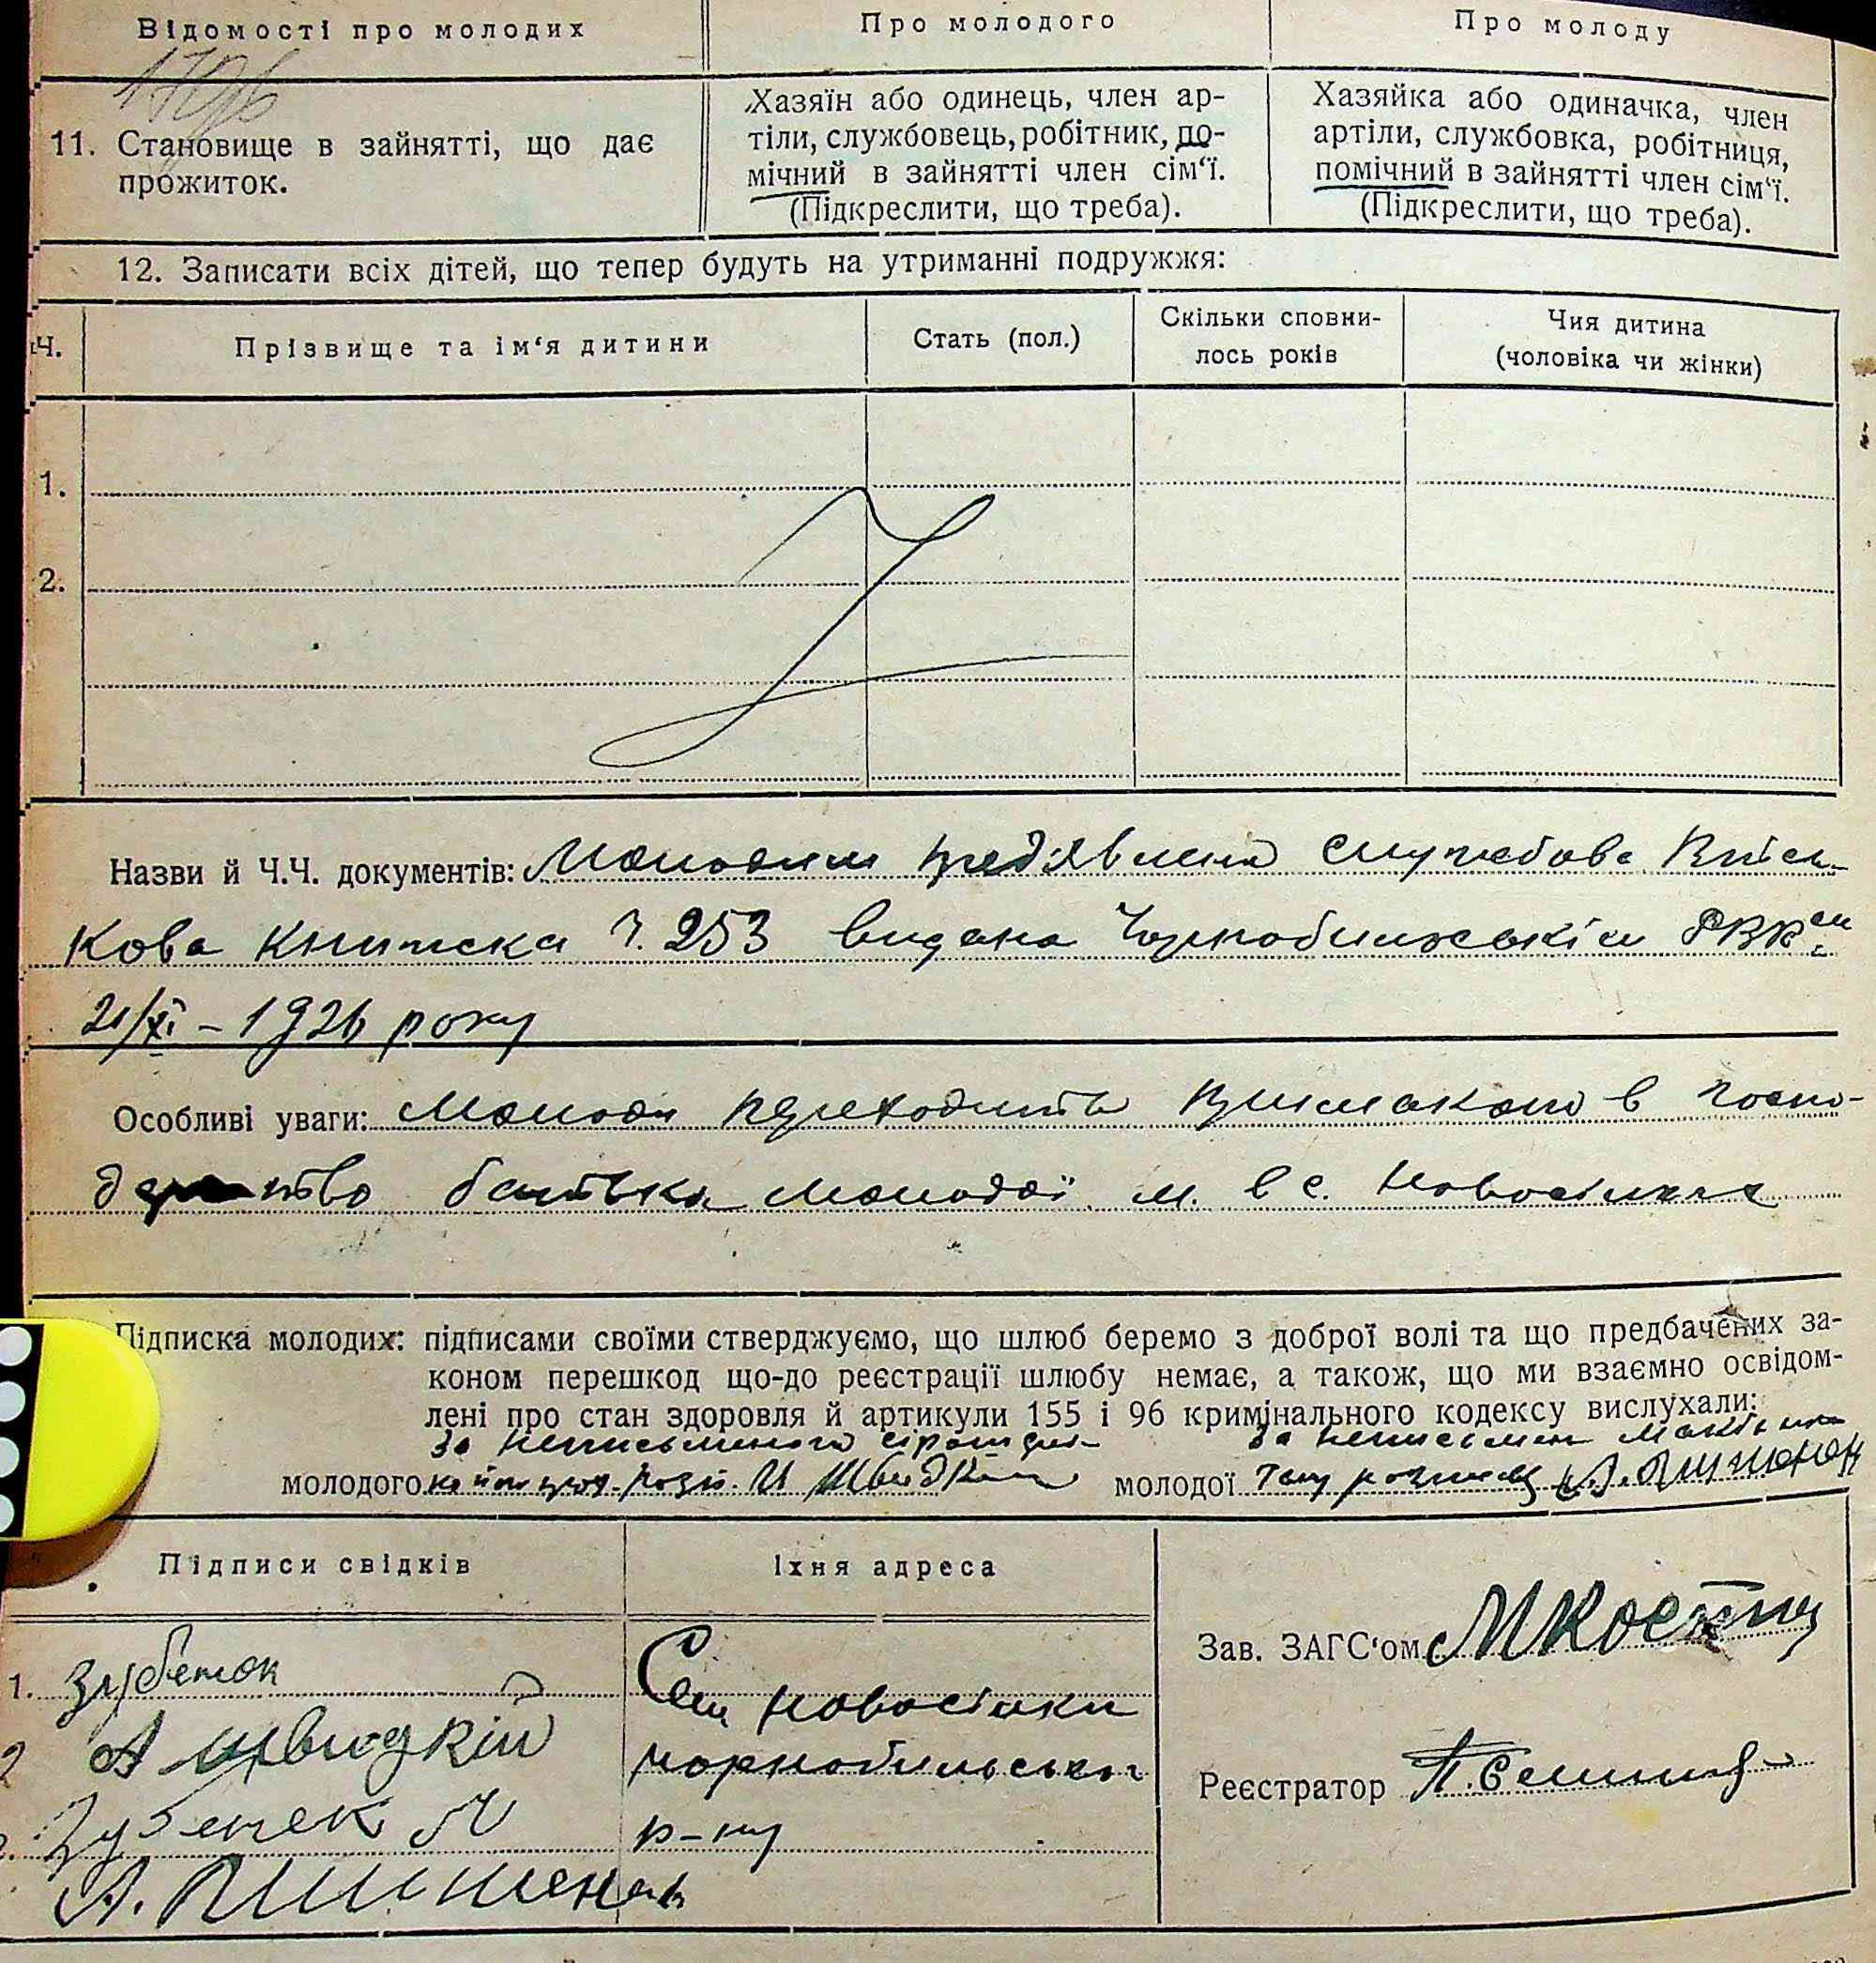 Відомості про молодих
Про молодого
Про молоду
11. Становище в зайнятті, що дає
прожиток.
Хазяїн або одинець, член ар-
тіли, службовець, робітник, по-
мічний в зайнятті член сім‘ї.
(Підкреслити, що треба).
Хазяйка або одиначка, член
артіли, службовка, робітниця,
помічний в зайнятті член сім‘ї.
(Підкреслити, що треба).
12. Записати всіх дітей, що тепер будуть на утриманні подружжя:
Ч.
Прізвище та ім‘я дитини
Стать (пол.)
Скільки сповни-
лось років
Чия дитина
(чоловіка чи жінки)
1.
2.
Назви й Ч.Ч. документів: Молодим предявлена службова Війсь-
кова книжка Ч. 253 видана Чорнобильським РВК
21/XI – 1926 року
Особливі уваги: Молоди переходить в госпо-
дарство батька молодої м. в с. Новосілках
Підписка молодих: підписами своїми стверджуємо, що шлюб беремо з доброї волі та що предбачених за-
коном перешкод що-до реєстрації шлюбу немає, а також, що ми взаємно освідом-
лені про стан здоровля й артикули 155 і 96 кримінального кодексу вислухали:
за неписьменого
за неписьмен
молодого Швидкій
молодої
Підписи свідків
Їхня адреса
1. Зубенок
2 А Швидкій
Зубенек
А.
Сел Новосілки
чорнобильськог
р-ну
Зав. ЗАГС‘ом
Реєстратор